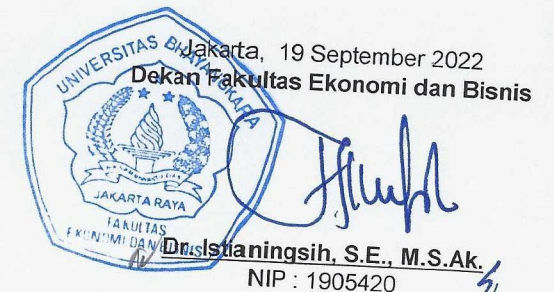 Jakarta, 19 September 2022
Dekan Fakultas Ekonomi dan Bisnis
UNIVERSITAS BHAYANGKARA
JAKARTA RAYA
FAKULTAS
EKONOMI DAN BISNIS
Dr. Istianingsih, S.E., M.S.Ak.
NIP : 1905420